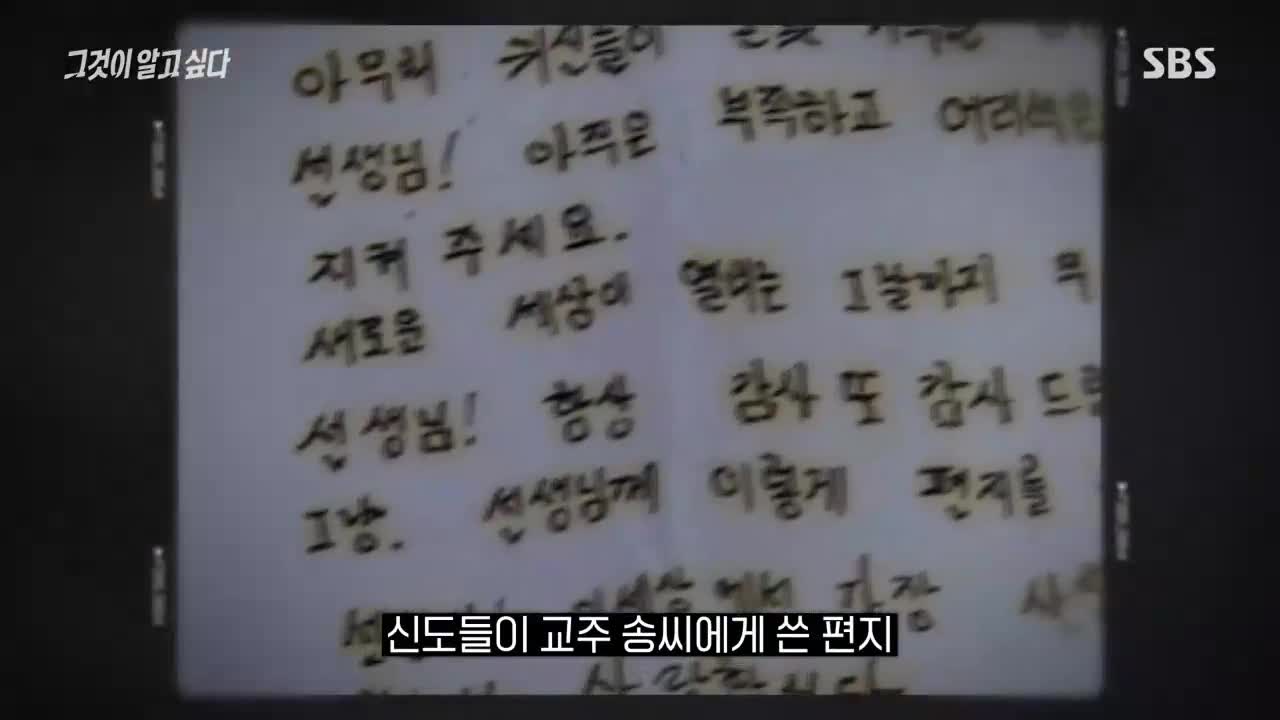 그것이 알고 싶다
SBS
아무리 귀신들이
선생님! 아직은 부족하고
지켜 주세요.
새로운 세상이 열리는 그날까지
선생님! 항상 감사 또 감사
그냥. 선생님께 이렇게 편지를
이세상에서 가장
신도들이 교주 송씨에게 쓴 편지